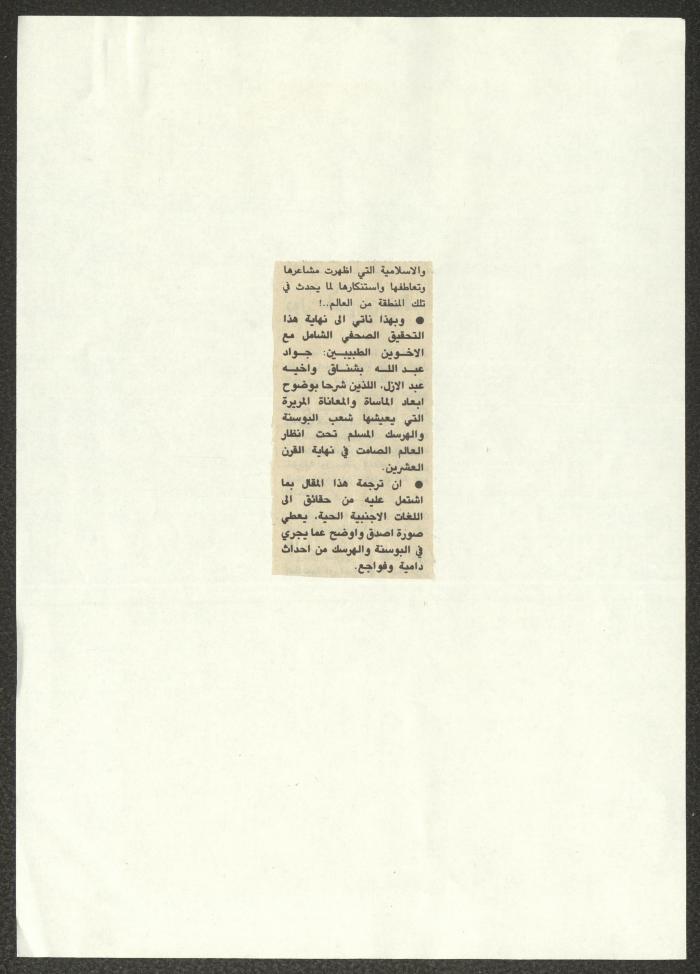 والاسلامية التي اظهرت مشاعرها
وتعاطفها واستنكارها لما يحدث في
تلك المنطقة من العالم..!
● وبهذا ناتي الى نهاية هذا
التحقيق الصحفي الشامل مع
الاخوين الطبيبين: جواد
عبد الله بشناق واخيه
عبد الازل، اللذين شرحا بوضوح
ابعاد الماساة والمعاناة المريرة
التي يعيشها شعب البوسنة
والهرسك المسلم تحت انظار
العالم الصامت في نهاية القرن
العشرين.
● ان ترجمة هذا المقال بما
اشتمل عليه من حقائق الى
اللغات الاجنبية الحية، يعطي
صورة اصدق واوضح عما يجري
في البوسنة والهرسك من احداث
دامية وفواجع.